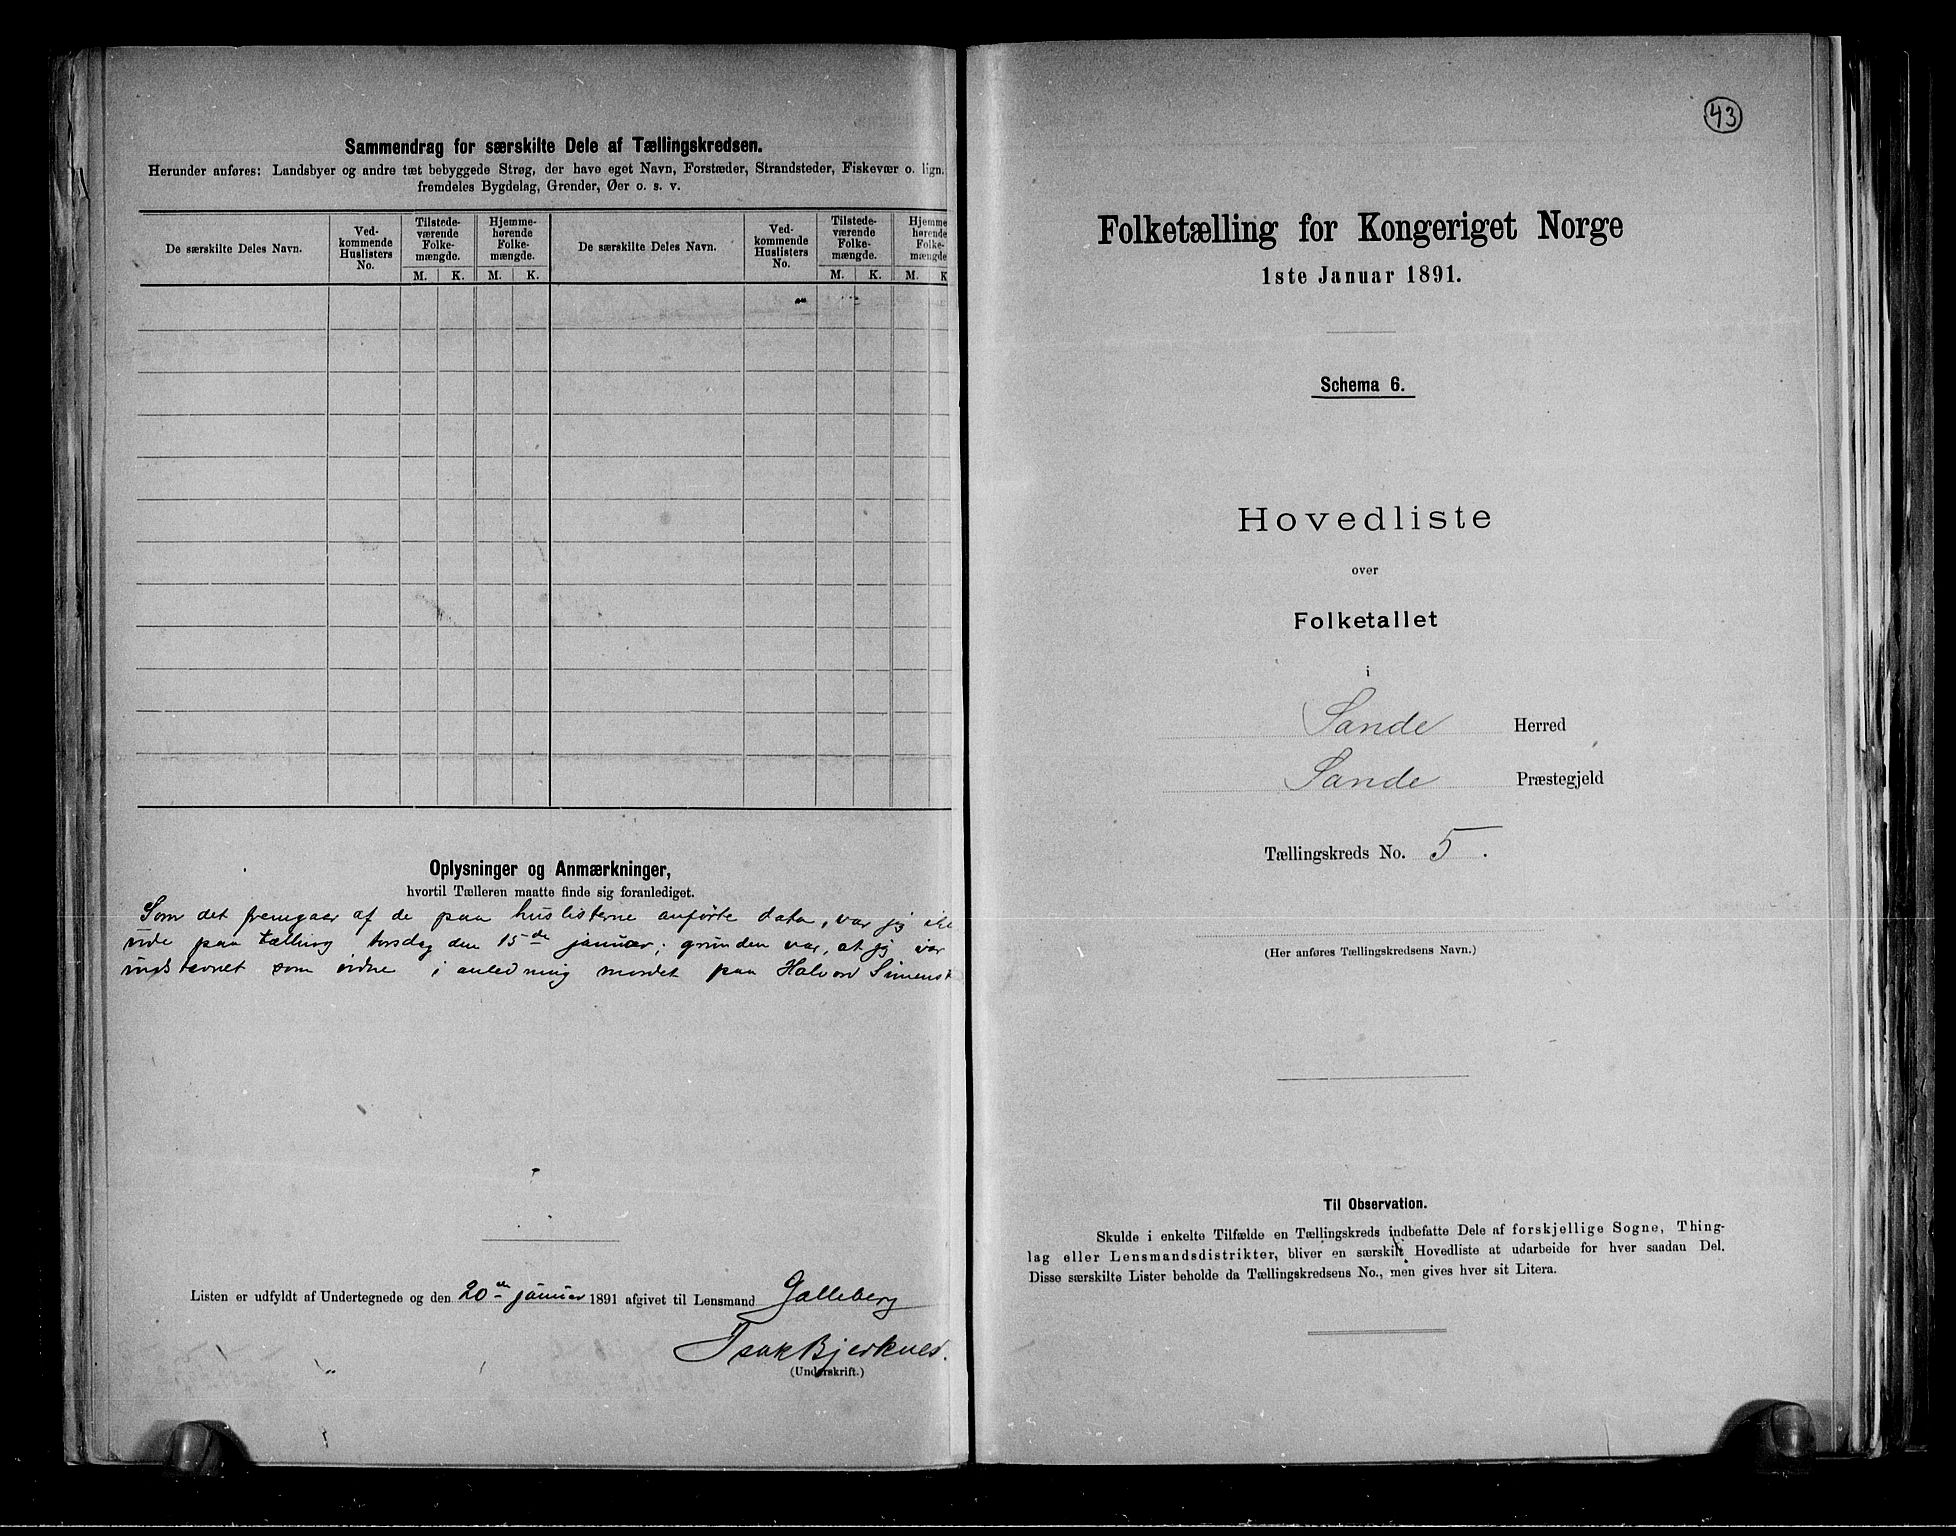 Sammendrag for særskilte Dele af Tællingskredsen.
Herunder anføres: Landsbyer og andre tæt bebyggede Strøg, der have eget Navn, Forstæder, Strandsteder, Fiskevær o. lign.
fremdeles Bygdelag, Grender, Øer o. s. v.
De særskilte Deles Navn.
Ved-
kommende
Huslisters
No.
Tilstede-
værende
Folke-
mængde.
M. K.
Hjemme-
hørende
Folke-
mængde.
M. K.
De særskilte Deles Navn.
Ved-
kommende
Huslisters
No.
Tilstede-
værende
Folke-
mængde.
M. K.
Hjemme
hørende
Folke-
mængde
M. K
Oplysninger og Anmærkninger,
hvortil Tælleren maatte finde sig foranlediget.
Som det fremgaar af de paa huslisterne anførte data, var jeg
ude paa tælling torsdag den 15de januar; grunden var, at jeg var
indstevnet som vidne i anledning mordet paa Halvor
Listen er udfyldt af Undertegnede og den 20de januar 1891 afgivet til Lensmand Galleberg
Isak Bjerknes.
(Underskrift.)
43
Folketælling for Kongeriget Norge
1ste Januar 1891.
Schema 6.
Hovedliste
over
Folketallet
i
Sande Herred
Sande Præstegjeld
Tællingskreds No. 5.
(Her anføres Tællingskredsens Navn.)
Til Observation.
Skulde i enkelte Tilfælde en Tællingskreds indbefatte Dele af forskjellige Sogne, Thing-
lag eller Lensmandsdistrikter, bliver en særskilt Hovedliste at udarbeide for hver saadan Del.
Disse særskilte Lister beholde da Tællingskredsens No., men gives hver sit Litera.